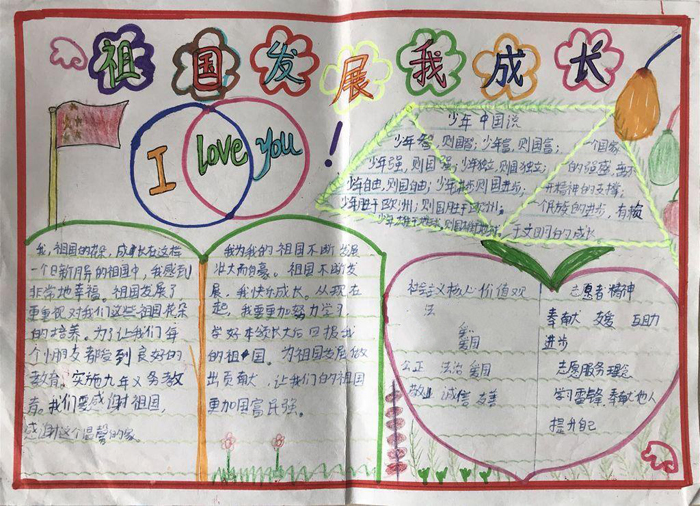 祖国发展我成长
I love you !
少年中国说
少年智,则国智;少年富,则国富;
少年强,则国强;少年独立,则国独立;
少年自由,则国自由;少年进步则国进步;
少年胜于欧洲;则国胜于欧洲;
一个国家
的强盛,
升精神的支撑;
一个民族的进步,有赖
于文明的成长
我,祖国的花朵,成长在这样
一个日新月异的祖国中,我感到
非常地幸福。祖国发展了
更重视对我们这些祖国花朵
的培养。为了让我们每
个小朋友都受到良好的
教育。实施九年义务教
育。我们要感谢祖国,
感谢这个温馨的家。
我为我的祖国不断发展
壮大而自豪。祖国不断发
展,我快乐成长。从现在
起,我要更加努力学习
学好本领长大后回报我
的祖国。为祖国发展做
出贡献,让我们的祖国
更加国富民强。
社会主义核心价值观
公正 法治
敬业 诚信 友善
志愿者精神
奉献 友爱 互助
进步
志愿服务理念
学习雷锋,奉献他人
提升自己